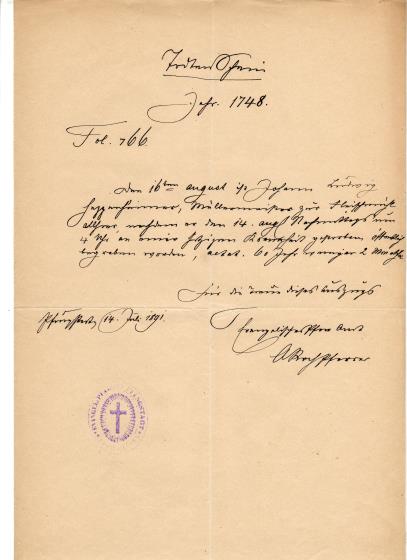 Todten Schein
Jahr. 1748.
Fol. 766.
Den 16ten august ist Johann Ludwig
Heppenheimer, Müllermeister zur
allhier, nachdem er den 14. aug. Nachmittags um
4 Uhr an einer hitzigen Krankheit gestorben, öffentlich
begraben worden, aetat. 60 Jahr weniger 2 Monathe.
Für die Treue dieses Auszugs
Pfungstadt, 14. Juli 1891.
Evangelisches Pfarramt
Pfarrer